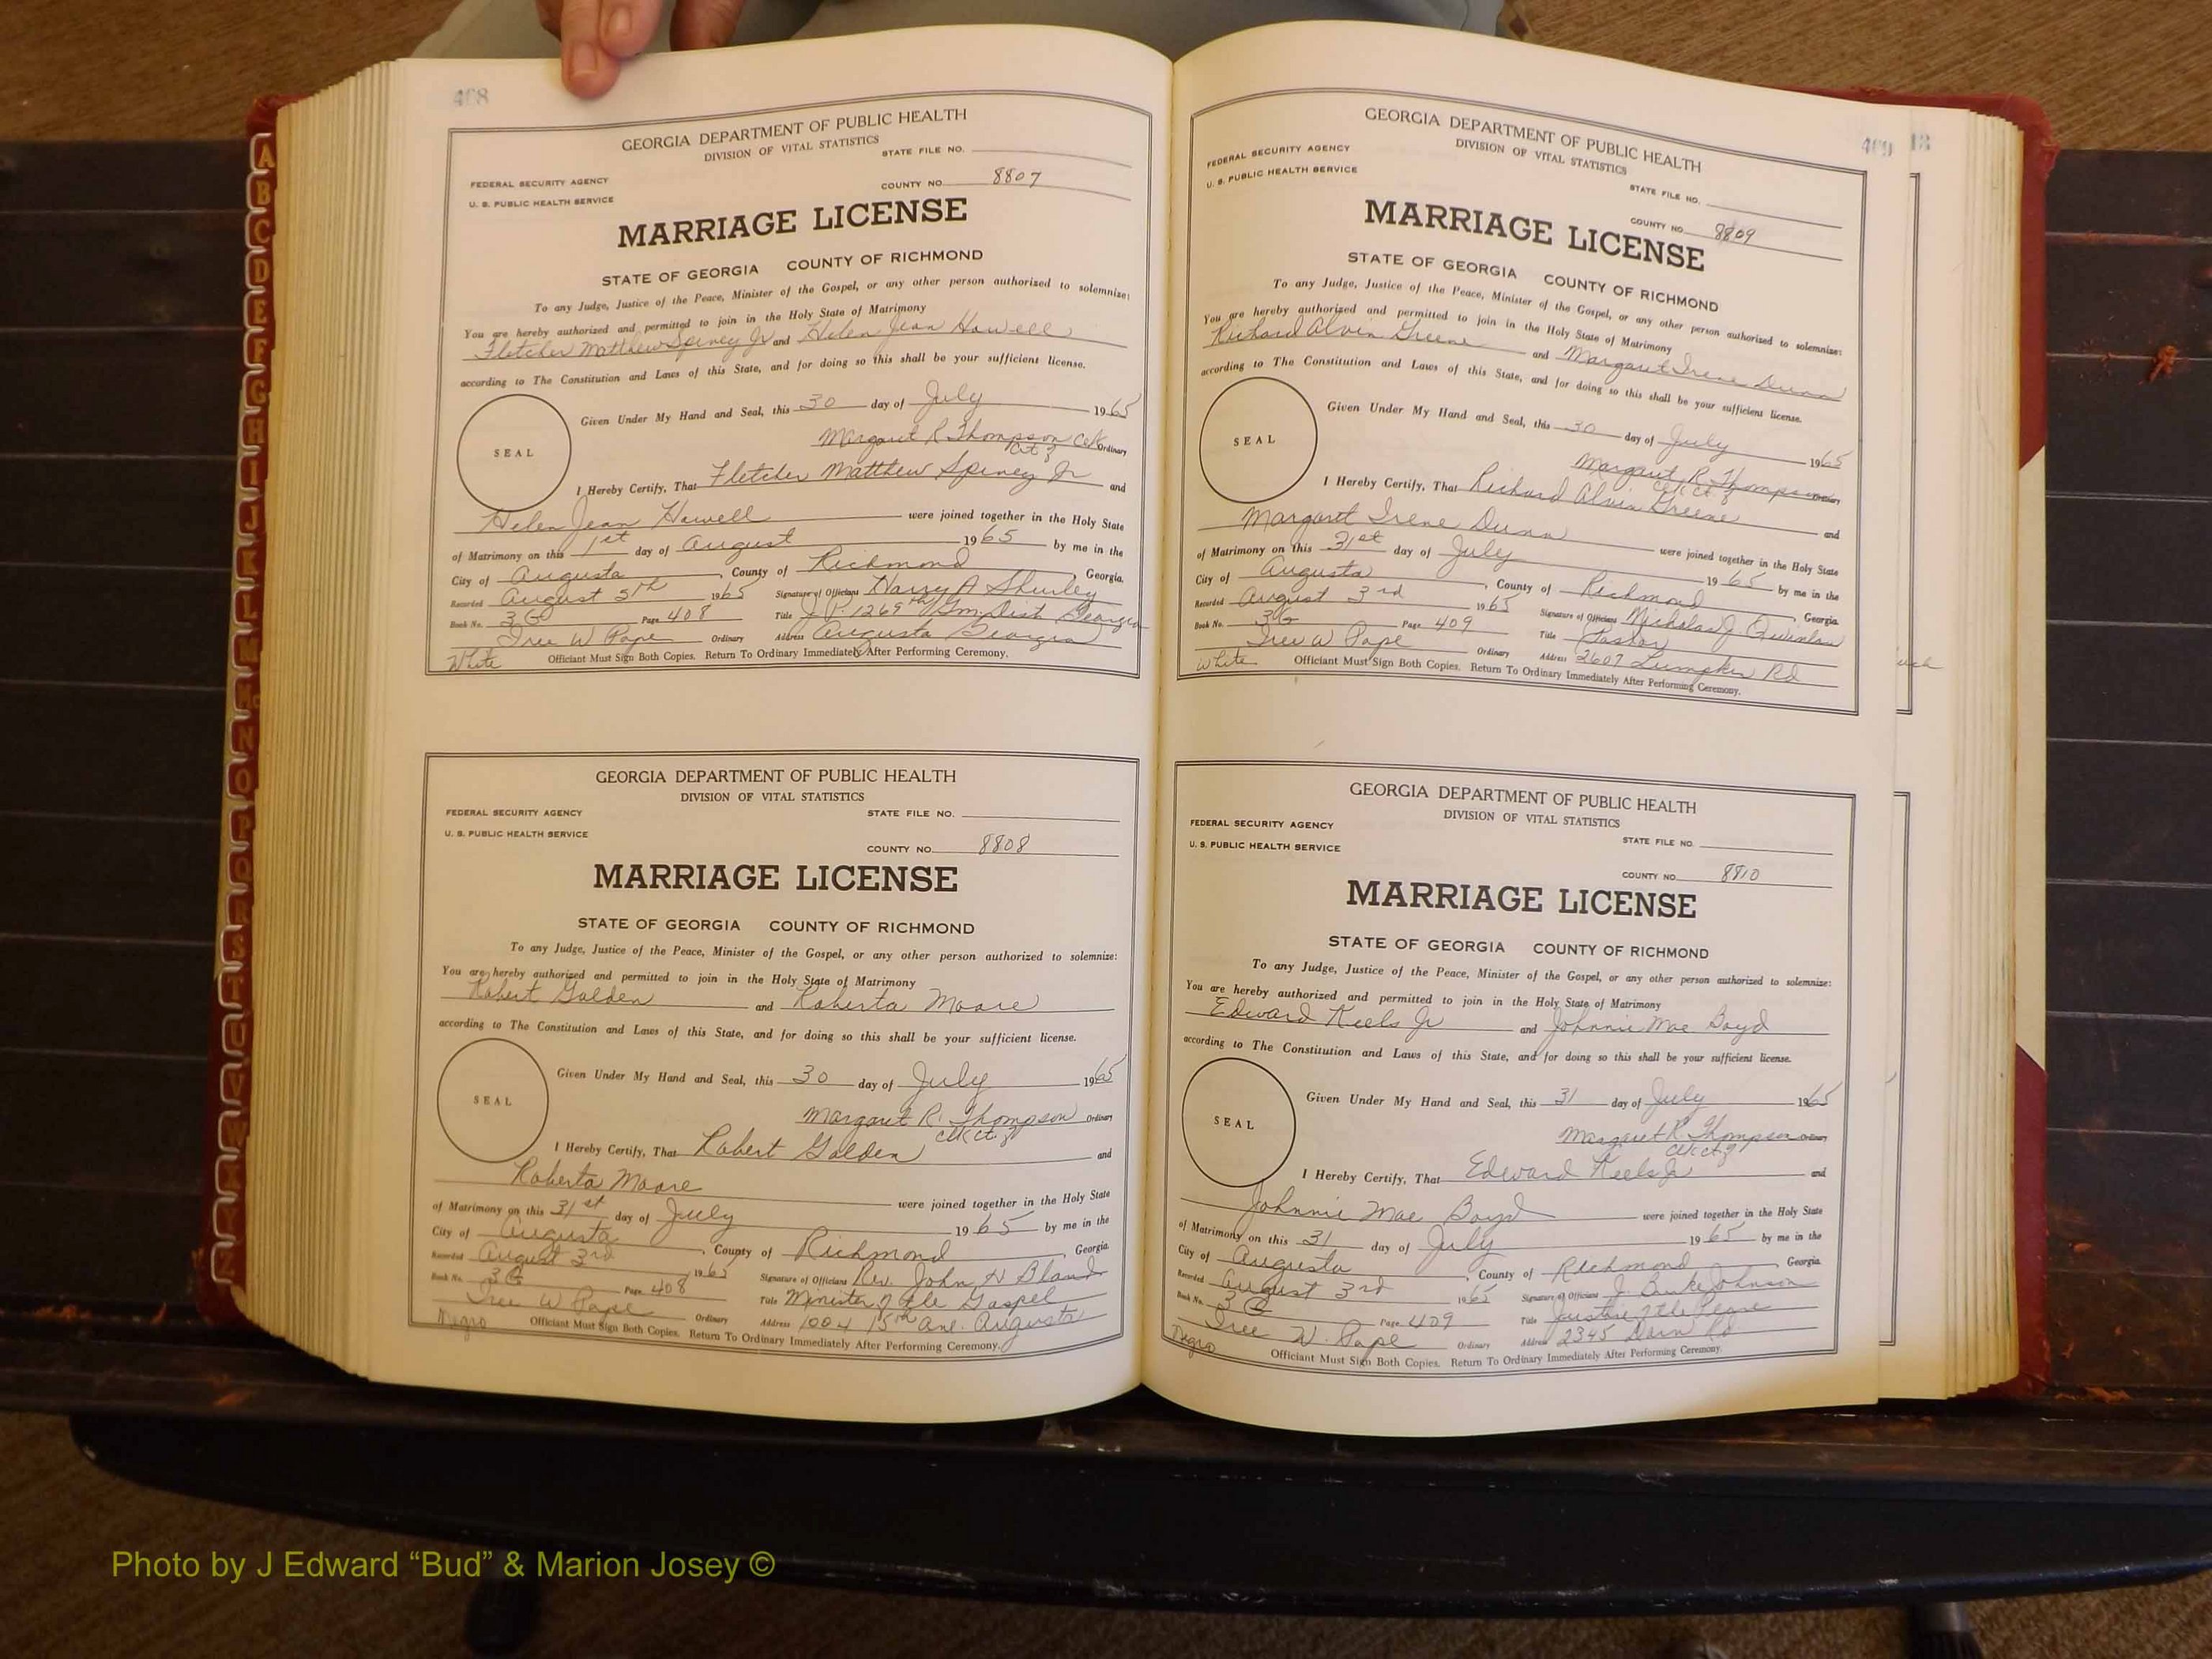 408
GEORGIA DEPARTMENT OF PUBLIC HEALTH
DIVISION OF VITAL STATISTICS
STATE FILE NO.
FEDERAL SECURITY AGENCY
U. S. PUBLIC HEALTH SERVICE
COUNTY NO. 8807
MARRIAGE LICENSE
STATE OF GEORGIA COUNTY OF RICHMOND
To any Judge, Justice of the Peace, Minister of the Gospel, or any other person authorized to solemnize:
You are hereby authorized and permitted to join in the Holy State of Matrimony
Fletcher Matthew Spivey Jr and Helen Jean Howell
according to The Constitution and Laws of this State, and for doing so this shall be your sufficient license.
SEAL
Given Under My Hand and Seal, this 30 day of July 1965
Margaret R Thompson Clk Ordinary
I Hereby Certify, That Fletcher Matthew Spivey Jr and
Helen Jean Howell were joined together in the Holy State
of Matrimony on this 1st day of August 1965 by me in the
City of Augusta, County of Richmond, Georgia.
Recorded August 5th 1965 Signature of Officiant Harry A Shurley
Book No. 3G Page 408 Title J. P. 1269th Gm. Dist Georgia
Iree W Pope Ordinary Address Augusta Georgia
White Officiant Must Sign Both Copies. Return To Ordinary Immediately After Performing Ceremony.
GEORGIA DEPARTMENT OF PUBLIC HEALTH
DIVISION OF VITAL STATISTICS
FEDERAL SECURITY AGENCY STATE FILE NO.
U. S. PUBLIC HEALTH SERVICE
COUNTY NO. 8808
MARRIAGE LICENSE
STATE OF GEORGIA COUNTY OF RICHMOND
To any Judge, Justice of the Peace, Minister of the Gospel, or any other person authorized to solemnize:
You are hereby authorized and permitted to join in the Holy State of Matrimony
Robert Golden and Roberta Moore
according to The Constitution and Laws of this State, and for doing so this shall be your sufficient license.
SEAL
Given Under My Hand and Seal, this 30 day of July 1965
Margaret R. Thompson Ordinary
I Hereby Certify, That Robert Golden and
Roberta Moore were joined together in the Holy State
of Matrimony on this 31st day of July 1965 by me in the
City of Augusta, County of Richmond, Georgia
Recorded August 3rd 1965 Signature of Officiant Rev. John H Bland
Book No. 3G Page 408 Title Minister of the Gospel
Iree W Pope Ordinary Address 1004 15th Ave. Augusta
Negro Officiant Must Sign Both Copies. Return To Ordinary Immediately After Performing Ceremony.
409
GEORGIA DEPARTMENT OF PUBLIC HEALTH
DIVISION OF VITAL STATISTICS
FEDERAL SECURITY AGENCY
U. S. PUBLIC HEALTH SERVICE
STATE FILE NO.
COUNTY NO. 8809
MARRIAGE LICENSE
STATE OF GEORGIA COUNTY OF RICHMOND
To any Judge, Justice of the Peace, Minister of the Gospel, or any other person authorized to solemnize:
You are hereby authorized and permitted to join in the Holy State of Matrimony
Richard Alvin Greene and Margaret Irene Dunn
according to The Constitution and Laws of this State, and for doing so this shall be your sufficient license.
SEAL
Given Under My Hand and Seal, this 30 day of July 1965
Margaret R. Thompson Ordinary
I Hereby Certify, That Richard Alvin Greene and
Margaret Irene Dunn were joined together in the Holy State
of Matrimony on this 31st day of July 1965 by me in the
City of Augusta, County of Richmond, Georgia
Recorded August 3rd 1965 Signature of Officiant Nicholas J Quinlan
Book No. 3G Page 409 Title Pastor
Iree W Pope Ordinary Address 2607 Lumpkin Rd
White Officiant Must Sign Both Copies. Return To Ordinary Immediately After Performing Ceremony.
GEORGIA DEPARTMENT OF PUBLIC HEALTH
DIVISION OF VITAL STATISTICS
FEDERAL SECURITY AGENCY
U. S. PUBLIC HEALTH SERVICE
STATE FILE NO.
COUNTY NO. 8810
MARRIAGE LICENSE
STATE OF GEORGIA COUNTY OF RICHMOND
To any Judge, Justice of the Peace, Minister of the Gospel, or any other person authorized to solemnize:
You are hereby authorized and permitted to join in the Holy State of Matrimony
Edward Keels Jr and Johnnie Mae Boyd
according to The Constitution and Laws of this State, and for doing so this shall be your sufficient license.
SEAL
Given Under My Hand and Seal, this 31 day of July 1965
Margaret R Thompson Ordinary
I Hereby Certify, That Edward Keels Jr and
Johnnie Mae Boyd were joined together in the Holy State
of Matrimony on this 31 day of July 1965 by me in the
City of Augusta, County of Richmond, Georgia
Recorded August 3rd 1965 Signature of Officiant J. Johnson
Book No. 3G Page 409 Title Justice of the Peace
Iree W. Pope Ordinary Address 2345 Rd
Negro Officiant Must Sign Both Copies. Return To Ordinary Immediately After Performing Ceremony.
A
B
C
D
E
F
G
H
I
J
K
L
M
Mc
N
O
P
Q
R
S
T
U
V
W
Photo by J Edward “Bud” & Marion Josey ©